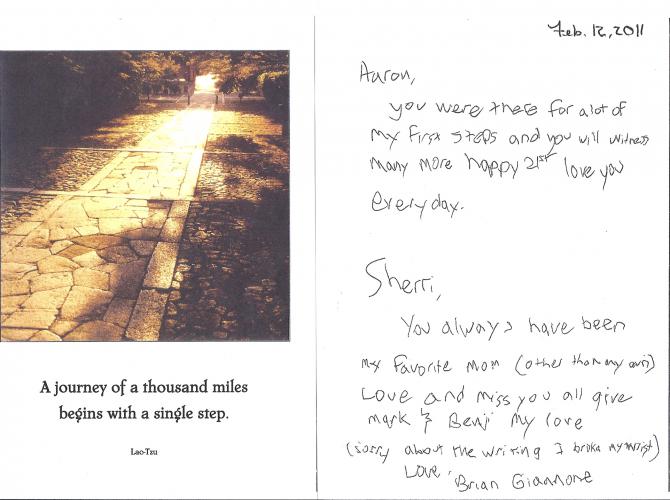 A journey of a thousand miles
begins with a single step.
Lao-Tzu
Feb. 12, 2011
Aaron,
you were there for a lot of
my first steps and you will witness
many more happy 21st love you
everyday.
Sherri,
You always have been
my favorite mom (other than my own)
Love and miss you all give
mark & Benji my love
(sorry about the writing I broke my wrist)
Love,
Brian Giannone